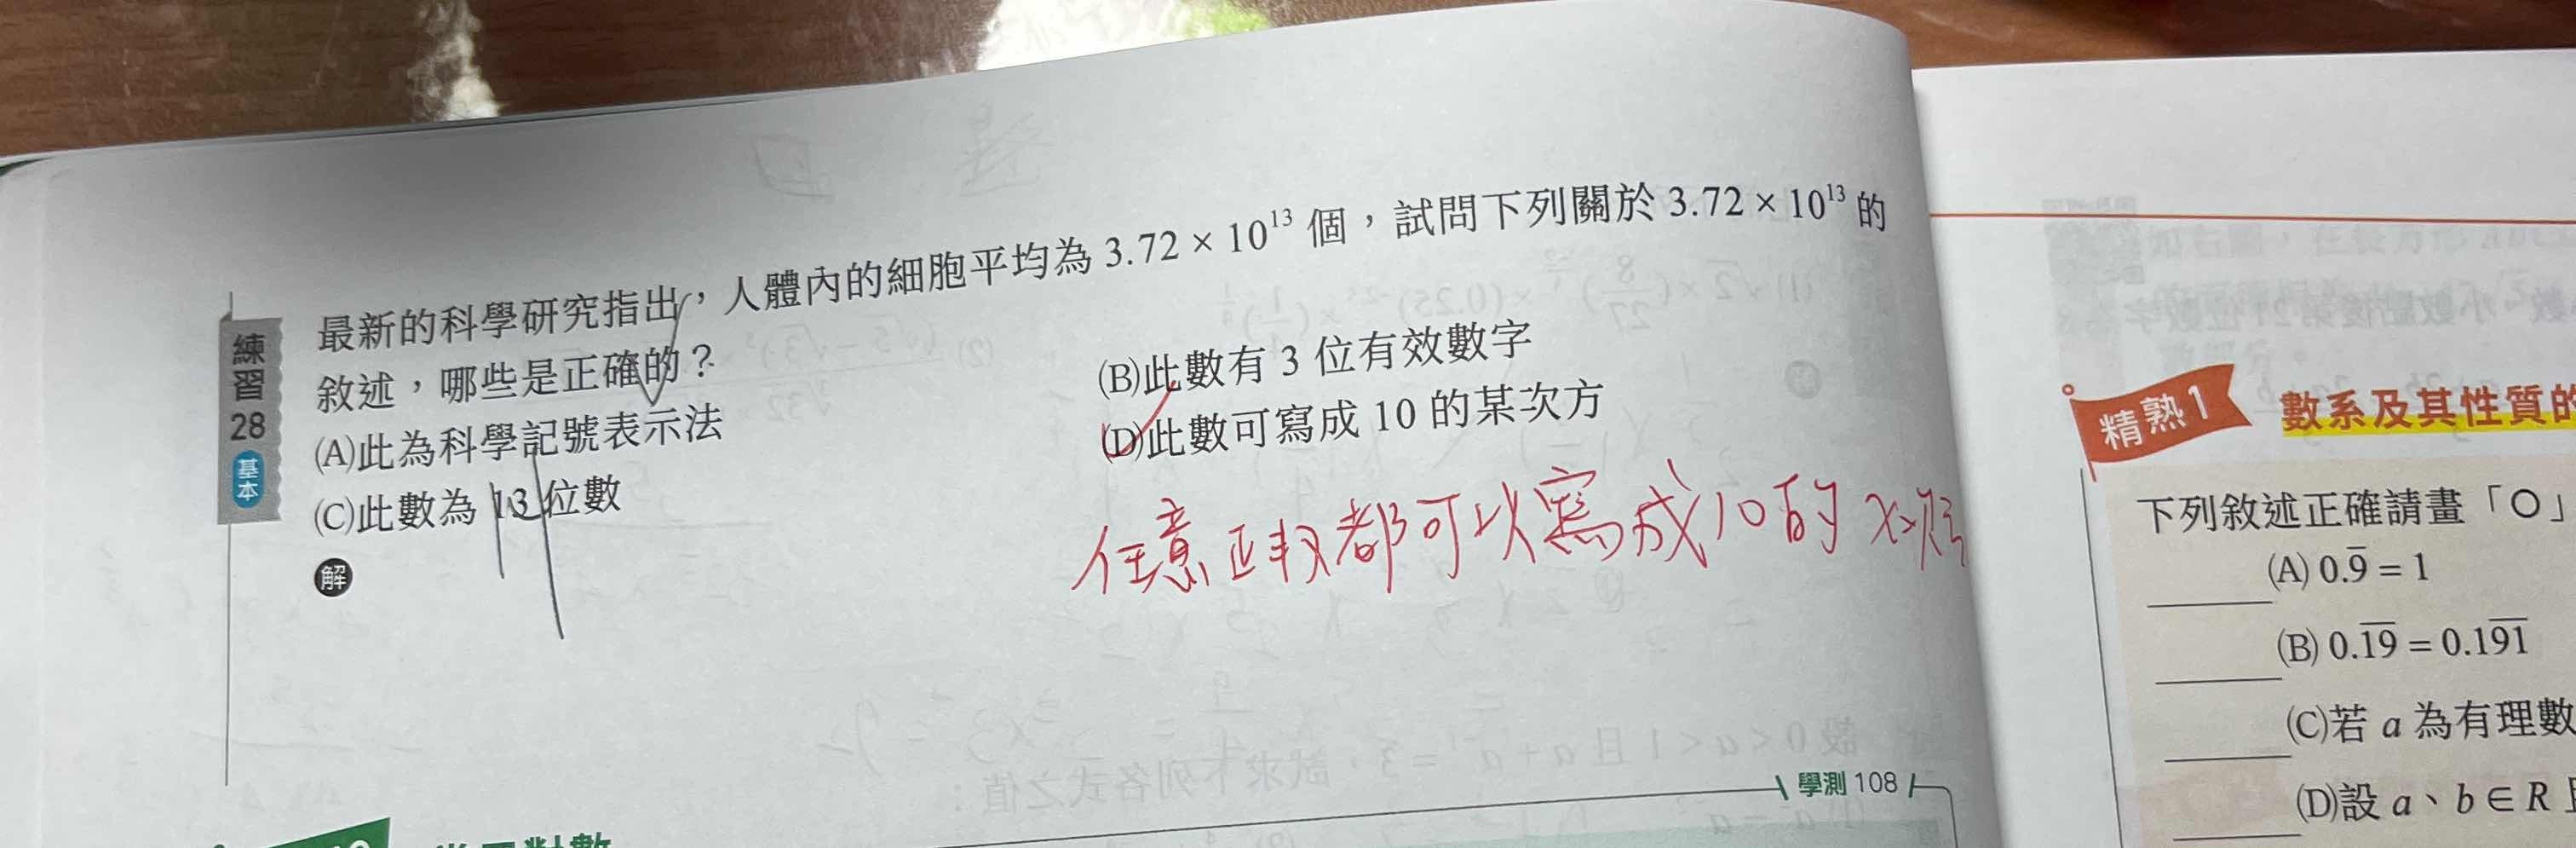 最新的科學研究指出，人體內的細胞平均為 3.72 × 10¹³ 個，試問下列關於 3.72 × 10¹³ 的
敘述，哪些是正確的？
(A)此為科學記號表示法
(B)此數有 3 位有效數字
(C)此數為 13 位數
(D)此數可寫成 10 的某次方
練習
28
基本
解
任意正數都可以寫成10的
學測 108
精熟 1
數系及其性質的
下列敘述正確請畫「○」
(A) 0.9̅ = 1
(B) 0.1̅9̅ = 0.19̅1̅
(C)若 a 為有理數
(D)設 a、b ∈ R